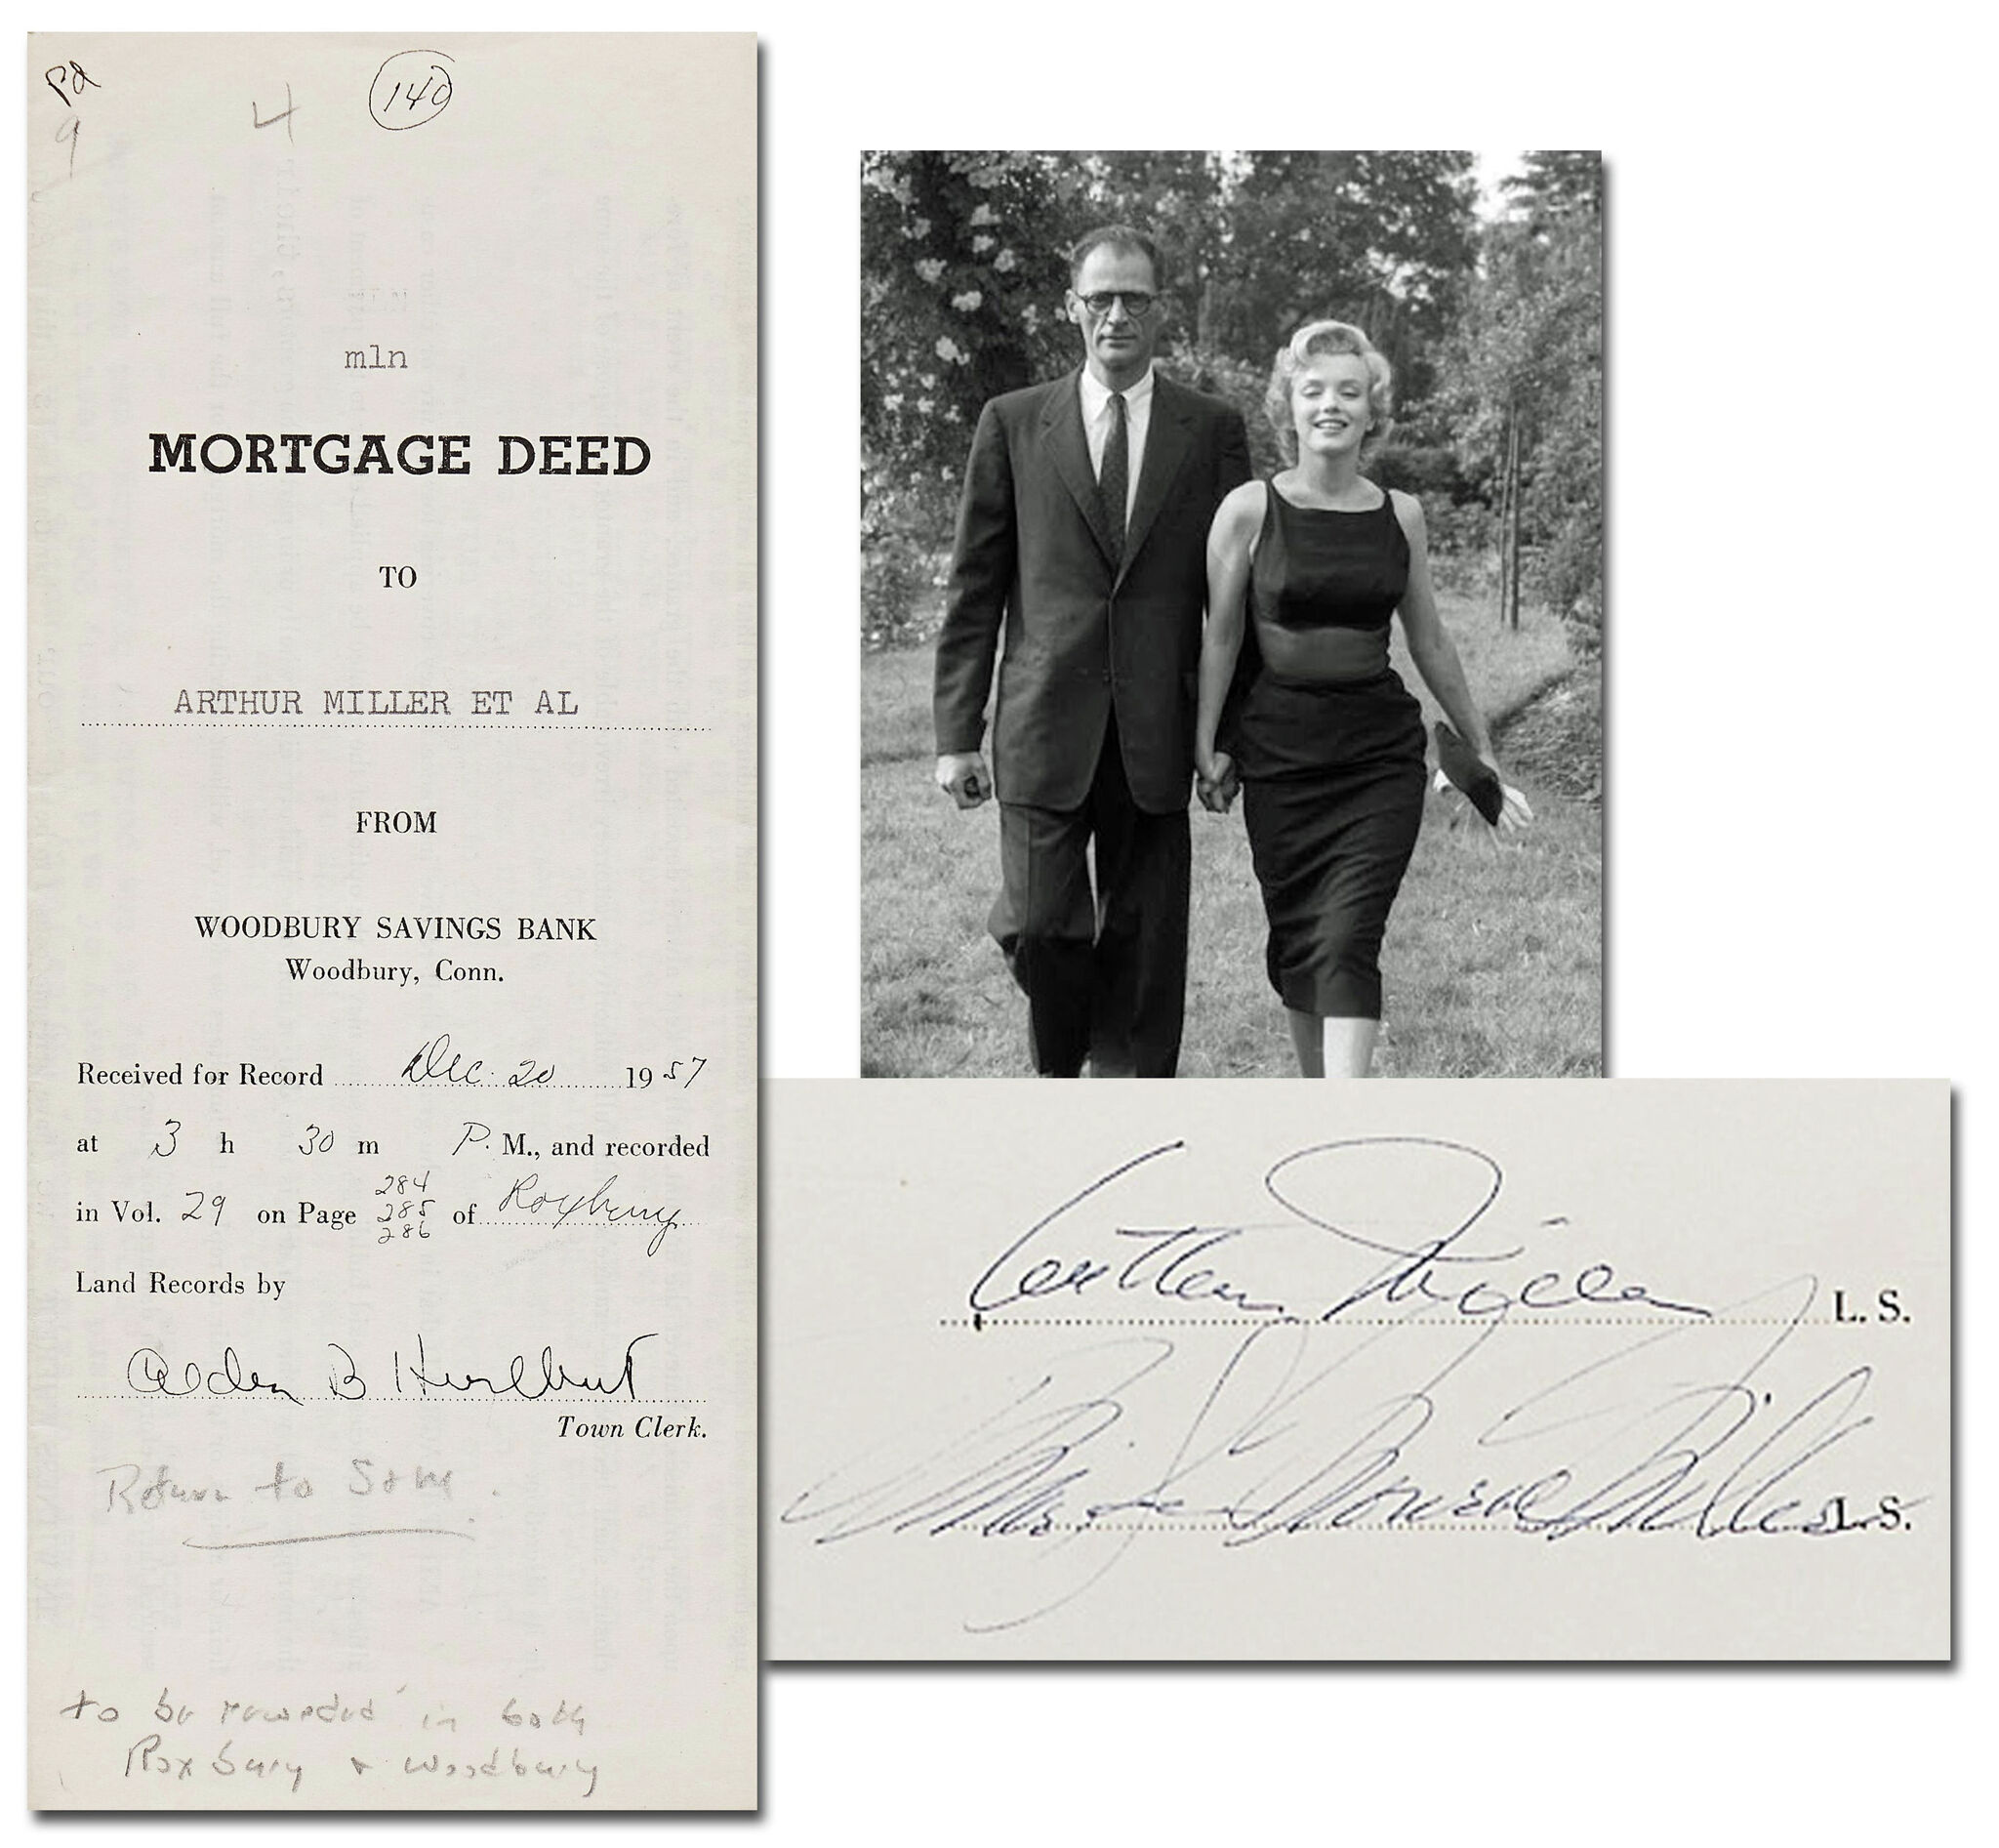 Pd
9
4
140
mln
MORTGAGE DEED
TO
ARTHUR MILLER ET AL
FROM
WOODBURY SAVINGS BANK
Woodbury, Conn.
Received for Record Dec. 20 1957
at 3 h 30 m P. M., and recorded
284
in Vol. 29 on Page 285 of Roxbury
286
Land Records by
Alden B Hurlbut
Town Clerk.
Return to Same.
to be recorded in both
Roxbury + Woodbury
Arthur Miller L. S.
Marilyn Monroe Miller L. S.